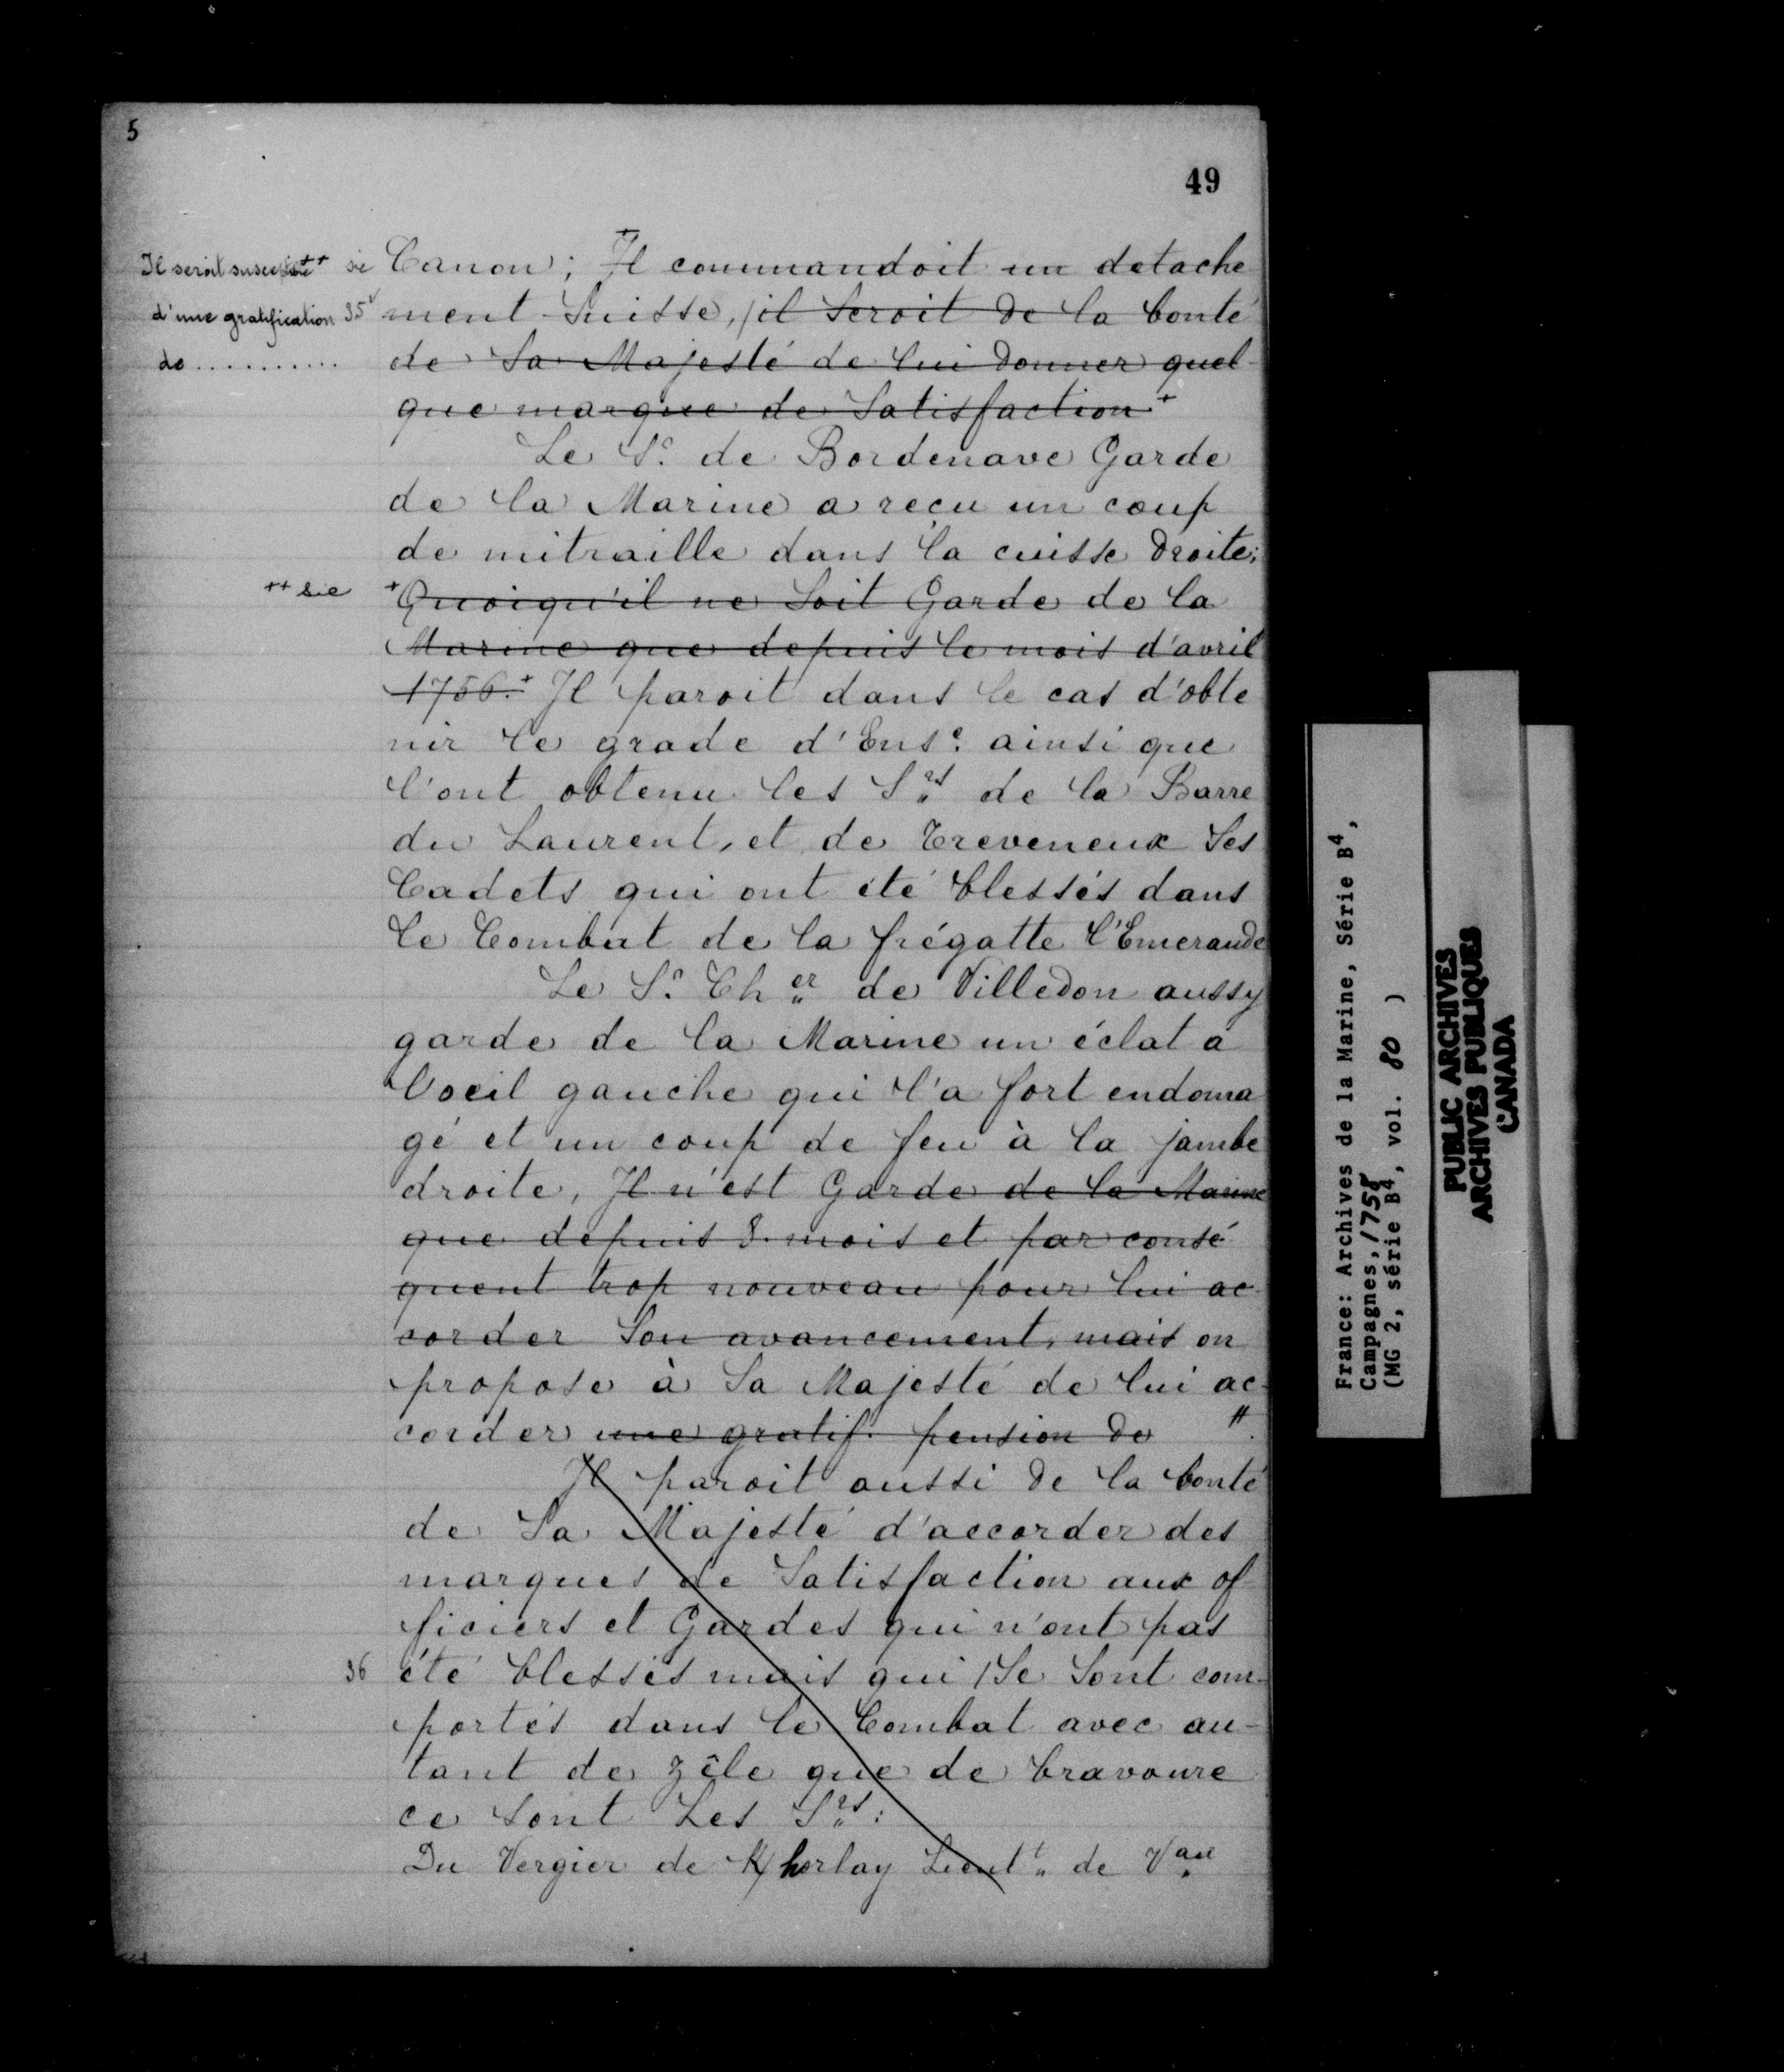 5
49
Il seroit susceptible ++ sic
d'une gratification 35v
de..........
Canon; + Il commandoit un detache
ment Suisse, / il Seroit de la bonté
de Sa Majesté de lui donner quel-
que marque de Satisfaction +
Le Sr. de Bordenave Garde
de la Marine a reçu un coup
de mitraille dans la cuisse droite;
++ sic
+ Quoiqu'il ne Soit Garde de la
Marine que depuis le mois d'avril
1756. + Il paroit dans le cas d'obte
nir le grade d'Ense. ainsi que
l'ont obtenu les Srs de la Barre
du Laurent, et de Treveneux Ses
Cadets qui ont été blessés dans
le Combat de la frégatte l'Emeraude
Le Sr. Cher de Villedon aussy
garde de la Marine un éclat a
l'oeil gauche qui l'a fort endoma
gé et un coup de feu à la jambe
droite, Il n'est Garde de la Marine
que depuis 8. mois et par consé
quent trop nouveau pour lui ac
corder Son avancement, mais on
propose à Sa Majesté de lui ac-
corder une gratif. pension de #.
Il paroit aussi de la bonté
de Sa Majesté d'accorder des
marques de Satisfaction aux of-
ficiers et Gardes qui n'ont pas
36
été blessés mais qui / Se Sont com-
portés dans le Combat avec au-
tant de zêle que de bravoure
ce Sont Les Srs:
Du Vergier de Khorlay Lieutt de Vau
France: Archives de la Marine, Série B4,
Campagnes, 1758
(MG 2, série B4, vol. 80 )
PUBLIC ARCHIVES
ARCHIVES PUBLIQUES
CANADA